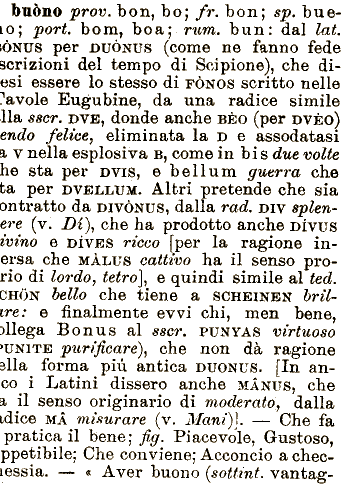 buòno prov. bon, bo; fr. bon; sp. bue-
no; port. bom, boa; rum. bun: dal lat.
BÒNUS per DUÒNUS (come ne fanno fede
scrizioni del tempo di Scipione), che di-
esi essere lo stesso di FÒNOS scritto nelle
Tavole Eugubine, da una radice simile
alla sscr. DVE, donde anche BÈO (per DVÈO)
endo felice, eliminata la D e assodatasi
la V nella esplosiva B, come in bis due volte
che sta per DVIS, e bellum guerra che
sta per DVELLUM. Altri pretende che sia
contratto da DIVÒNUS, dalla rad. DIV splen-
ere (v. Dí), che ha prodotto anche DÍVUS
divino e DÍVES ricco [per la ragione in-
versa che MÀLUS cattivo ha il senso pro-
rio di lordo, tetro], e quindi simile al ted.
SCHÖN bello che tiene a SCHEINEN bril-
are: e finalmente evvi chi, men bene,
collega Bonus al sscr. PUNYAS virtuoso
PUNITE purificare), che non dà ragione
della forma piú antica DUONUS. [In an-
co i Latini dissero anche MÂNUS, che
a il senso originario di moderato, dalla
radice MÂ misurare (v. Mani)]. — Che fa
pratica il bene; fig. Piacevole, Gustoso,
appetibile; Che conviene; Acconcio a chec-
chessia. — « Aver buono (sottint. vantag-